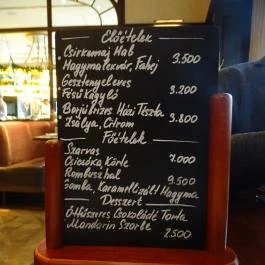 Előételek
Csirkemáj Hab
Hagymalekvár, Fahéj 3.500
Gesztenyeleves
Fésű Kagyló 3.200
Borjúbrizes Házi Tészta
Zsálya, Citrom 3.800
Főételek
Szarvas
Csicsóka, Körte 7.000
Rombuszhal 9.500
Gomba, Karamellizált Hagyma
Desszert
Ötfűszeres Csokoládé Torta
Mandarin Szorbe 2.500